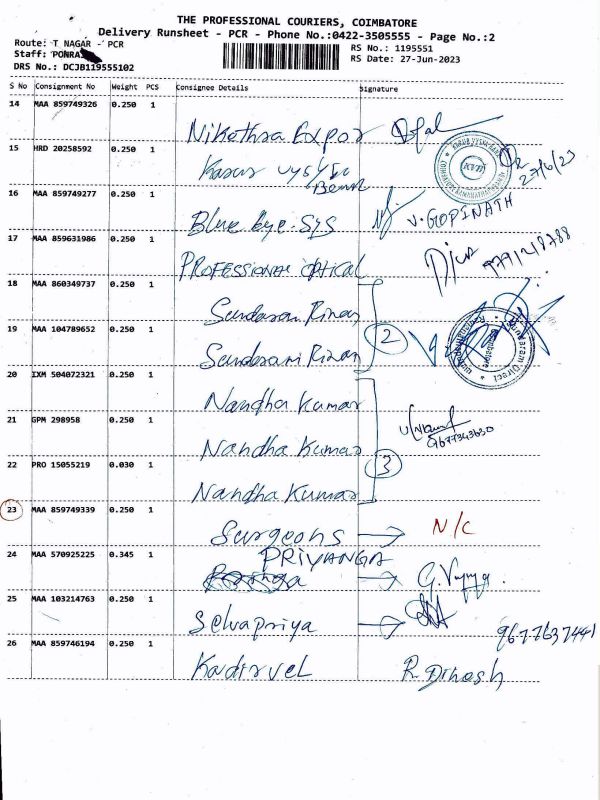 THE PROFESSIONAL COURIERS, COIMBATORE
Delivery Runsheet - PCR - Phone No.:0422-3505555 - Page No.:2
Route: T NAGAR - PCR
RS No.: 1195551
Staff:
RS Date: 27-Jun-2023
DRS No.: DCJB119555102
S No Consignment No Weight PCS Consignee Details Signature
14 MAA 859749326 0.250 1
Nikethra Expor
15 HRD 20258592 0.250 1
27/6/23
16 MAA 859749277 0.250 1
Blue bye-Sys V. GOPINATH
17 MAA 859631986 0.250 1
PROFESSIONAL OPTICAL
18 MAA 860349737 0.250 1
2
19 MAA 104789652 0.250 1
20 IXM 504072321 0.250 1
Nandha Kumar
21 GPM 298958 0.250 1
9677343630
Nandha Kumar
22 PRO 15055219 0.030 1
3
Nandha Kumar
23 MAA 859749339 0.250 1
Surgeons N/C
24 MAA 570925225 0.345 1
PRIYANGA
25 MAA 103214763 0.250 1
Selvapriya 9677637441
26 MAA 859746194 0.250 1
Kadirvel R. Dinosh